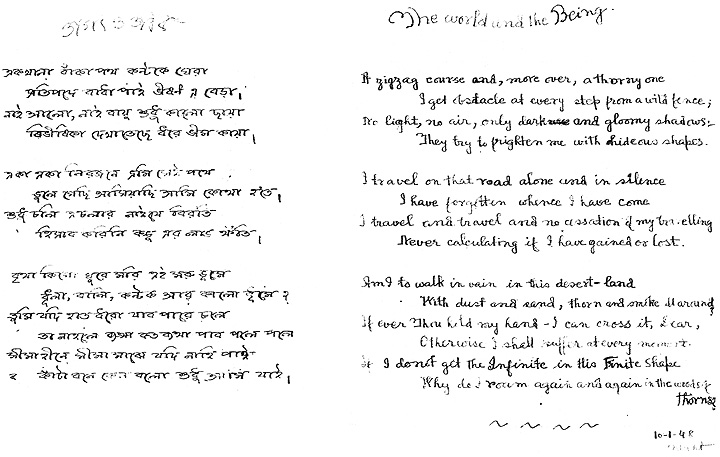 জগৎ ও জীব
একখানা বাঁকা পথ কন্টকে ঘেরা
প্রতিপদে বাধা পাই ভীষণ এ বেড়া।
নাই আলো, নাই বায়ু শুধু কালো ছায়া
বিভীষিকা দেখাতেছে ধীরে ভীম কায়া।
একা একা নিরজনে চলি সেই পথে
ভুলে গেছি আসিয়াছি আমি কোথা হতে।
শুধু চলি চলার নাহিক বিরতি
হিসাব করিনি কছু এর লাভ ক্ষতি।
বৃথা কি ঘুরে মরি এই মরু
ধূলা, বালি, কন্টক আর
তুমি যদি হাত ধরো যাব পারে চলে
তা নাহলে ব্যথা পাব পলে পলে
সীমা মাঝে যদি নাহি পাই
কাঁটা বনে কেন বলো শুধু আসি যাই।
The world and the Being.
A zigzag course and, more over, a thorny one
I get obstacle at every step from a wild fence;
No light, no air, only dark and gloomy shadows:-
They try to prighten me with hideous shapes.
I travel on that road alone and in silence
I have forgotten whence I have come
I travel and travel and no cessation of my travelling
Never calculating if I have gained or lost.
Am I to walk in vain in this desert-land
With dust and sand, thorn and smoke all around
If ever Thou hold my hand - I can cross it, Dear,
Otherwise I shall suffer at every moment.
If I don't get the Infinite in His Finite Shape
Why do I roam again and again in the woods of
thorns?
10-1-48